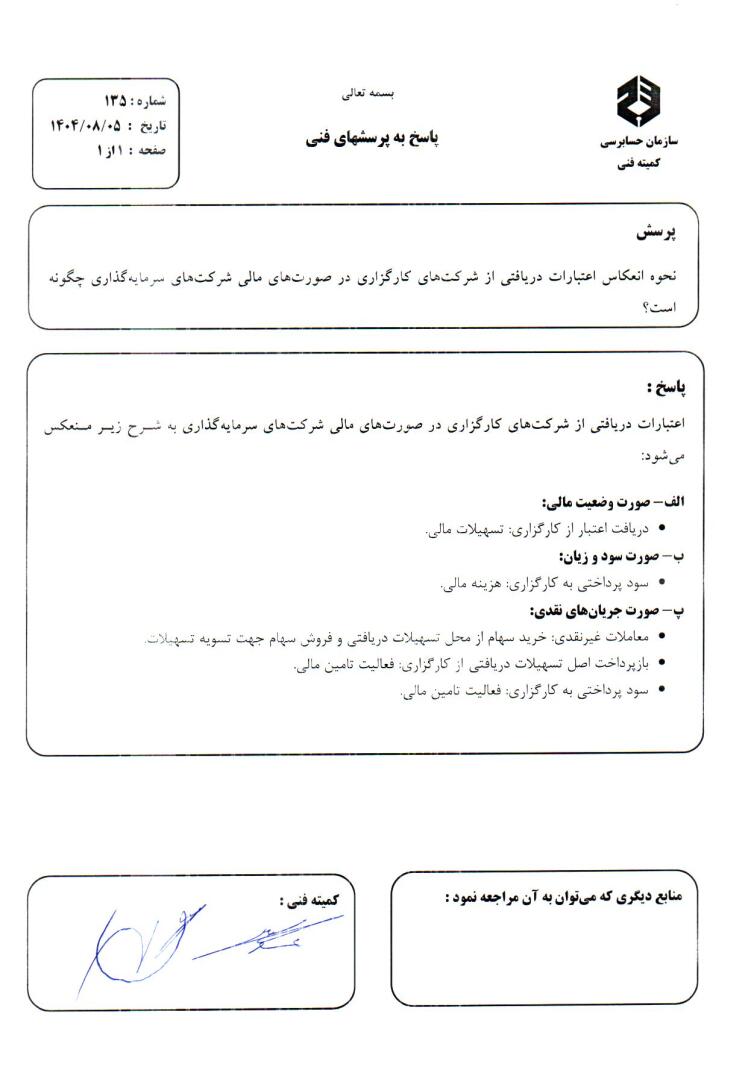 بسمه تعالی
پاسخ به پرسشهای فنی
سازمان حسابرسی
کمیته فنی
شماره : ۱۳۵
تاریخ : ۱۴۰۴/۰۸/۰۵
صفحه : ۱ از ۱
پرسش
نحوه انعکاس اعتبارات دریافتی از شرکت‌های کارگزاری در صورت‌های مالی شرکت‌های سرمایه‌گذاری چگونه
است؟
پاسخ :
اعتبارات دریافتی از شرکت‌های کارگزاری در صورت‌های مالی شرکت‌های سرمایه‌گذاری به شرح زیر منعکس
می‌شود:
الف– صورت وضعیت مالی:
• دریافت اعتبار از کارگزاری: تسهیلات مالی.
ب– صورت سود و زیان:
• سود پرداختی به کارگزاری: هزینه مالی.
پ– صورت جریان‌های نقدی:
• معاملات غیرنقدی: خرید سهام از محل تسهیلات دریافتی و فروش سهام جهت تسویه تسهیلات.
• بازپرداخت اصل تسهیلات دریافتی از کارگزاری: فعالیت تامین مالی.
• سود پرداختی به کارگزاری: فعالیت تامین مالی.
منابع دیگری که می‌توان به آن مراجعه نمود :
کمیته فنی :